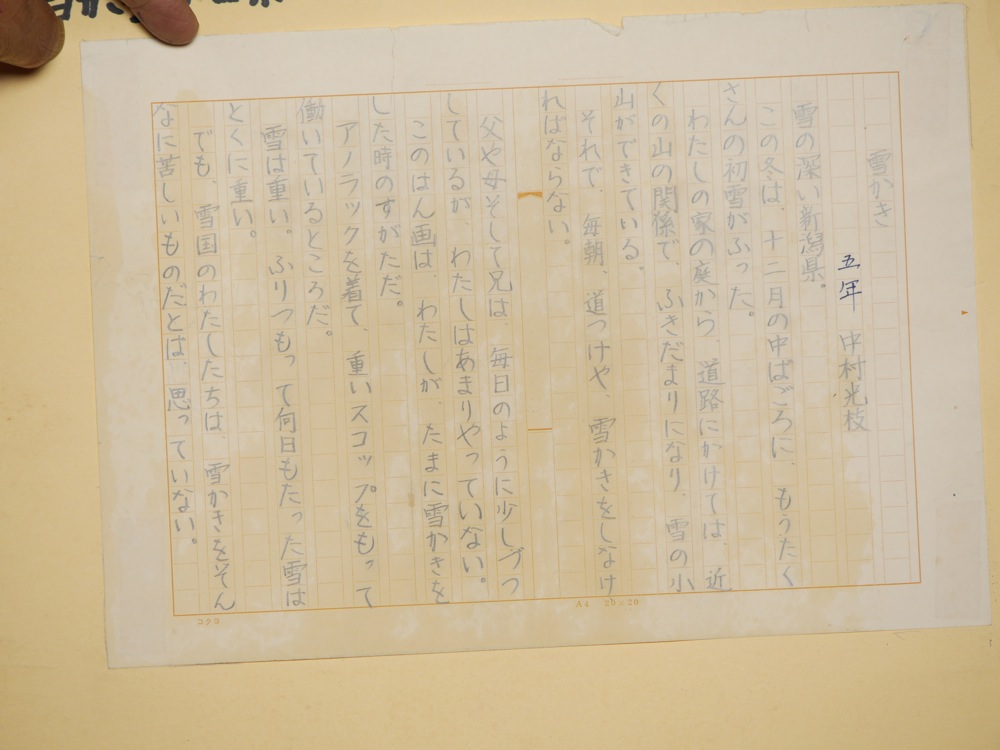 雪かき
五年 中村光枝
雪の深い新潟県。
この冬は、十二月の中ばごろに、もうたく
さんの初雪がふった。
わたしの家の庭から、道路にかけては、近
くの山の関係で、ふきだまりになり、雪の小
山ができている。
それで、毎朝、道つけや、雪かきをしなけ
ればならない。
父や母そして兄は、毎日のように少しづつ
しているが、わたしはあまりやっていない。
このはん画は、わたしが、たまに雪かきを
した時のすがただ。
アノラックを着て、重いスコップをもって
働いているところだ。
雪は重い。ふりつもって何日もたった雪は
とくに重い。
でも、雪国のわたしたちは、雪かきをそん
なに苦しいものだとは、思っていない。
A4 20×20
コクヨ